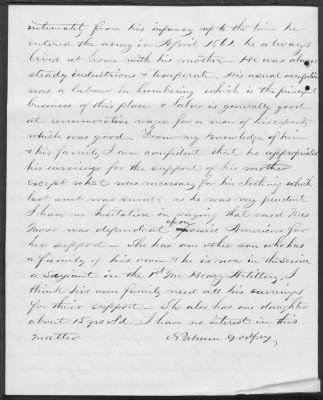 intimately from his infancy up to the time he
entered the army in April 1861. he always
lived at home with his mother. He was always
steady industrious & temperate. His usual occupation
was a labour in lumbering which is the principal
business of this place & labor is generally good
at remunerative wages for a man of his capacity
which was good. From my knowledge of him
& his family I am confident that he appropriated
his earnings for the support of his mother
except what was necessary for his clothing which
last amt was small as he was very prudent
I have no hesitation in saying that said Mrs
Moor was dependent upon said Americus for
her support - She has one other son who has
a family of his own & he is now in the service
a serjeant in the 1st Me Heavy Artillery, I
think his own family need all his earnings
for their support - She also has one daughter
about 15 yrs old - I have no interest in this
matter Godfrey